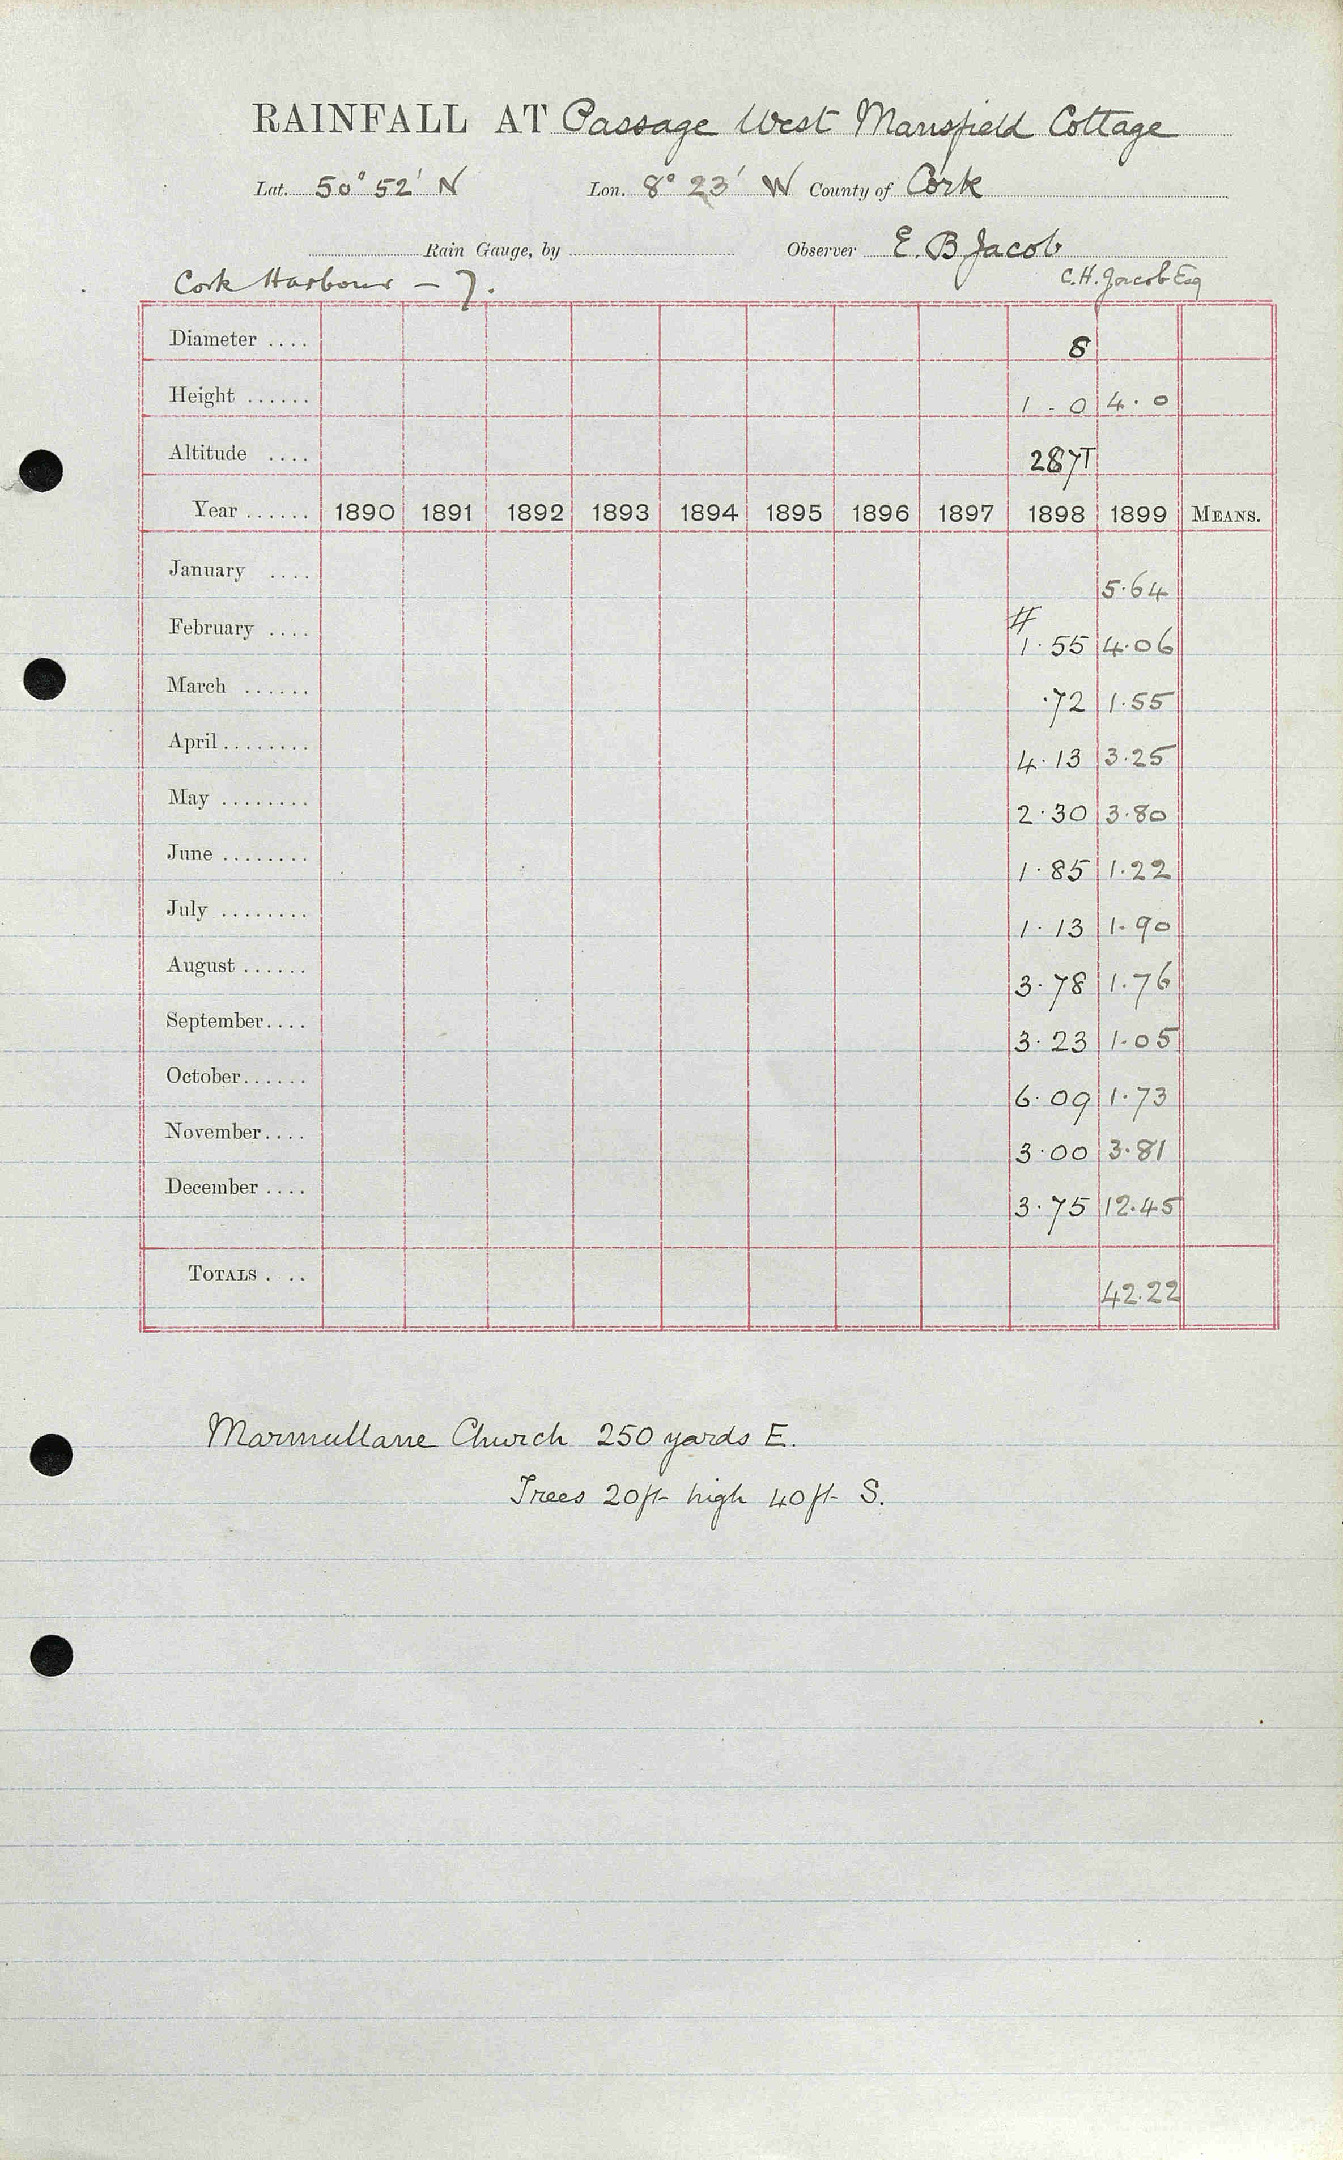 RAINFALL AT Passage West Mansfield Cottage
Lat. 50° 52' N Lon. 8° 23' W County of Cork
Rain Gauge, by Observer E. B Jacob
Cork Harbour - 7. C.H. Jacob Esq
Diameter .... 8
Height ...... 1 - 0 4. 0
Altitude .... 287T
Year ...... 1890 1891 1892 1893 1894 1895 1896 1897 1898 1899 MEANS.
January .... 5.64
February .... # 1.55 4.06
March ...... .72 1.55
April ........ 4.13 3.25
May ........ 2.30 3.80
June ........ 1.85 1.22
July ........ 1.13 1.90
August ...... 3.78 1.76
September.... 3.23 1.05
October...... 6.09 1.73
November.... 3.00 3.81
December .... 3.75 12.45
TOTALS . .. 42.22
Marmullane Church 250 yards E.
Trees 20ft high 40ft S.